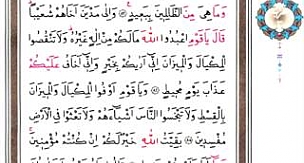 وَمَا هِيَ مِنَ الظَّالِمِينَ بِبَعِيدٍ ۝ وَإِلَىٰ مَدْيَنَ أَخَاهُمْ شُعَيْبًا
قَالَ يَا قَوْمِ اعْبُدُوا اللَّهَ مَا لَكُمْ مِنْ إِلَٰهٍ غَيْرُهُ وَلَا تَنْقُصُوا
الْمِكْيَالَ وَالْمِيزَانَ إِنِّي أَرَاكُمْ بِخَيْرٍ وَإِنِّي أَخَافُ عَلَيْكُمْ
عَذَابَ يَوْمٍ مُحِيطٍ ۝ وَيَا قَوْمِ أَوْفُوا الْمِكْيَالَ وَالْمِيزَانَ
بِالْقِسْطِ وَلَا تَبْخَسُوا النَّاسَ أَشْيَاءَهُمْ وَلَا تَعْثَوْا فِي الْأَرْضِ
مُفْسِدِينَ ۝ بَقِيَّتُ اللَّهِ خَيْرٌ لَكُمْ إِنْ كُنْتُمْ مُؤْمِنِينَ